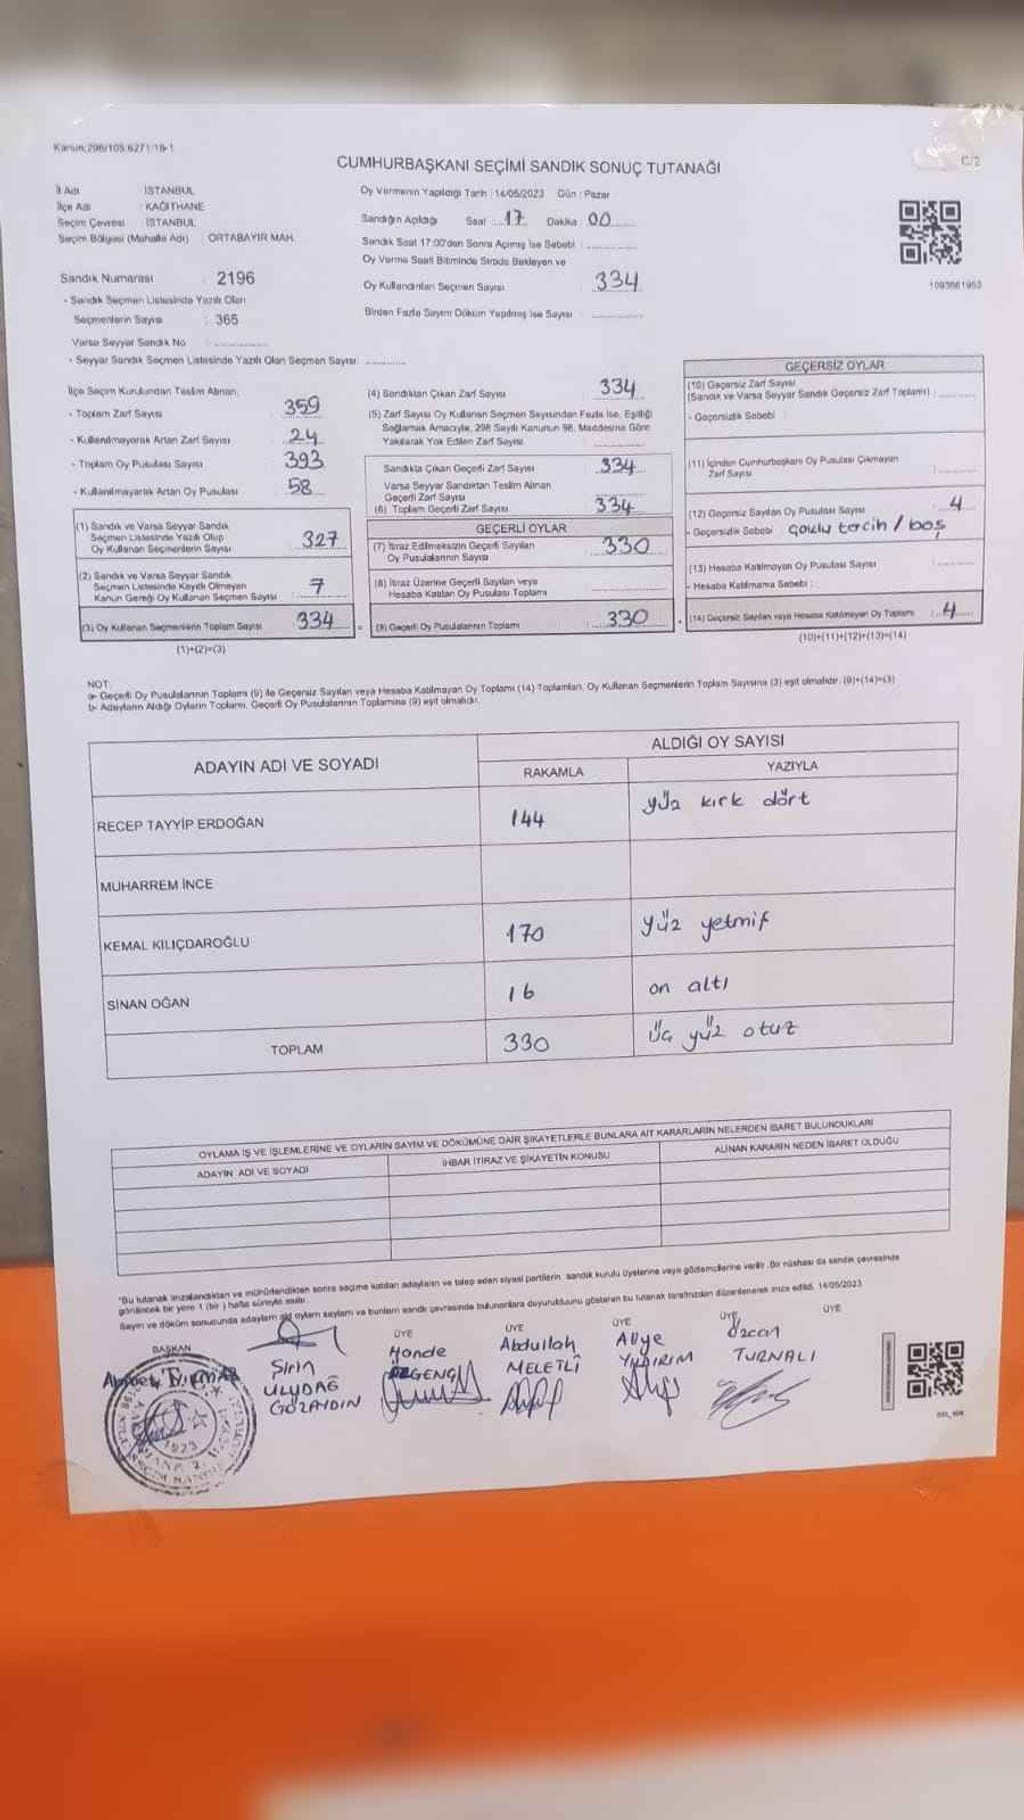 Kanun:298/105,6271/18-1
CUMHURBAŞKANI SEÇİMİ SANDIK SONUÇ TUTANAĞI
C/2
İl Adı : İSTANBUL
İlçe Adı : KAĞITHANE
Seçim Çevresi : İSTANBUL
Seçim Bölgesi (Mahalle Adı) : ORTABAYIR MAH.
Sandık Numarası : 2196
- Sandık Seçmen Listesinde Yazılı Olan
Seçmenlerin Sayısı : 365
Varsa Seyyar Sandık No : ............
- Seyyar Sandık Seçmen Listesinde Yazılı Olan Seçmen Sayısı : ............
Oy Vermenin Yapıldığı Tarih : 14/05/2023 Gün : Pazar
Sandığın Açıldığı Saat : 17 Dakika : 00
Sandık Saat 17:00'den Sonra Açılmış İse Sebebi : ............
Oy Verme Saati Bitiminde Sırada Bekleyen ve
Oy Kullandırılan Seçmen Sayısı 334
Birden Fazla Sayım Döküm Yapılmış İse Sayısı : ............
1093661953
İlçe Seçim Kurulundan Teslim Alınan,
- Toplam Zarf Sayısı 359
- Kullanılmayarak Artan Zarf Sayısı 24
- Toplam Oy Pusulası Sayısı 393
- Kullanılmayarak Artan Oy Pusulası 58
(1) Sandık ve Varsa Seyyar Sandık
Seçmen Listesinde Yazılı Olup
Oy Kullanan Seçmenlerin Sayısı 327
(2) Sandık ve Varsa Seyyar Sandık
Seçmen Listesinde Kayıtlı Olmayan
Kanun Gereği Oy Kullanan Seçmen Sayısı 7
(3) Oy Kullanan Seçmenlerin Toplam Sayısı 334
(1)+(2)=(3)
(4) Sandıktan Çıkan Zarf Sayısı 334
(5) Zarf Sayısı Oy Kullanan Seçmen Sayısından Fazla İse, Eşitliği
Sağlamak Amacıyla, 298 Sayılı Kanunun 98. Maddesine Göre
Yakılarak Yok Edilen Zarf Sayısı ............
Sandıkta Çıkan Geçerli Zarf Sayısı 334
Varsa Seyyar Sandıktan Teslim Alınan
Geçerli Zarf Sayısı ............
(6) Toplam Geçerli Zarf Sayısı 334
GEÇERLİ OYLAR
(7) İtiraz Edilmeksizin Geçerli Sayılan
Oy Pusulalarının Sayısı 330
(8) İtiraz Üzerine Geçerli Sayılan veya
Hesaba Katılan Oy Pusulası Toplamı ............
(9) Geçerli Oy Pusulalarının Toplamı 330
GEÇERSİZ OYLAR
(10) Geçersiz Zarf Sayısı
(Sandık ve Varsa Seyyar Sandık Geçersiz Zarf Toplamı) : ............
- Geçersizlik Sebebi :
(11) İçinden Cumhurbaşkanı Oy Pusulası Çıkmayan
Zarf Sayısı ............
(12) Geçersiz Sayılan Oy Pusulası Sayısı 4
- Geçersizlik Sebebi : çoklu tercih / boş
(13) Hesaba Katılmayan Oy Pusulası Sayısı ............
- Hesaba Katılmama Sebebi :
(14) Geçersiz Sayılan veya Hesaba Katılmayan Oy Toplamı : 4
(10)+(11)+(12)+(13)=(14)
NOT:
a- Geçerli Oy Pusulalarının Toplamı (9) ile Geçersiz Sayılan veya Hesaba Katılmayan Oy Toplamı (14) Toplamları, Oy Kullanan Seçmenlerin Toplam Sayısına (3) eşit olmalıdır. (9)+(14)=(3)
b- Adayların Aldığı Oyların Toplamı, Geçerli Oy Pusulalarının Toplamına (9) eşit olmalıdır.
ADAYIN ADI VE SOYADI
ALDIĞI OY SAYISI
RAKAMLA YAZIYLA
RECEP TAYYİP ERDOĞAN 144 yüz kırk dört
MUHARREM İNCE
KEMAL KILIÇDAROĞLU 170 yüz yetmiş
SİNAN OĞAN 16 on altı
TOPLAM 330 üç yüz otuz
OYLAMA İŞ VE İŞLEMLERİNE VE OYLARIN SAYIM VE DÖKÜMÜNE DAİR ŞİKAYETLERLE BUNLARA AİT KARARLARIN NELERDEN İBARET BULUNDUKLARI
ADAYIN ADI VE SOYADI İHBAR İTİRAZ VE ŞİKAYETİN KONUSU ALINAN KARARIN NEDEN İBARET OLDUĞU
*Bu tutanak imzalandıktan ve mühürlendikten sonra seçime katılan adayların ve talep eden siyasi partilerin sandık kurulu üyelerine veya gözlemcilerine verilir. Bir nüshası da sandık çevresinde
görülecek bir yere 1 (bir ) hafta süreyle asılır.
Sayım ve döküm sonucunda adayların ad oyların sayılarını ve bunların sandık çevresinde bulunanlara duyurulduğunu gösteren bu tutanak tarafımızdan düzenlenerek imza edildi. 14/05/2023
BAŞKAN ÜYE ÜYE ÜYE ÜYE ÜYE
Şirin ULUDAĞ GÖZAYDIN
Hande ÖZGENÇ
Abdullah MELETLİ
Aliye YILDIRIM
Özcan TURNALI
1923